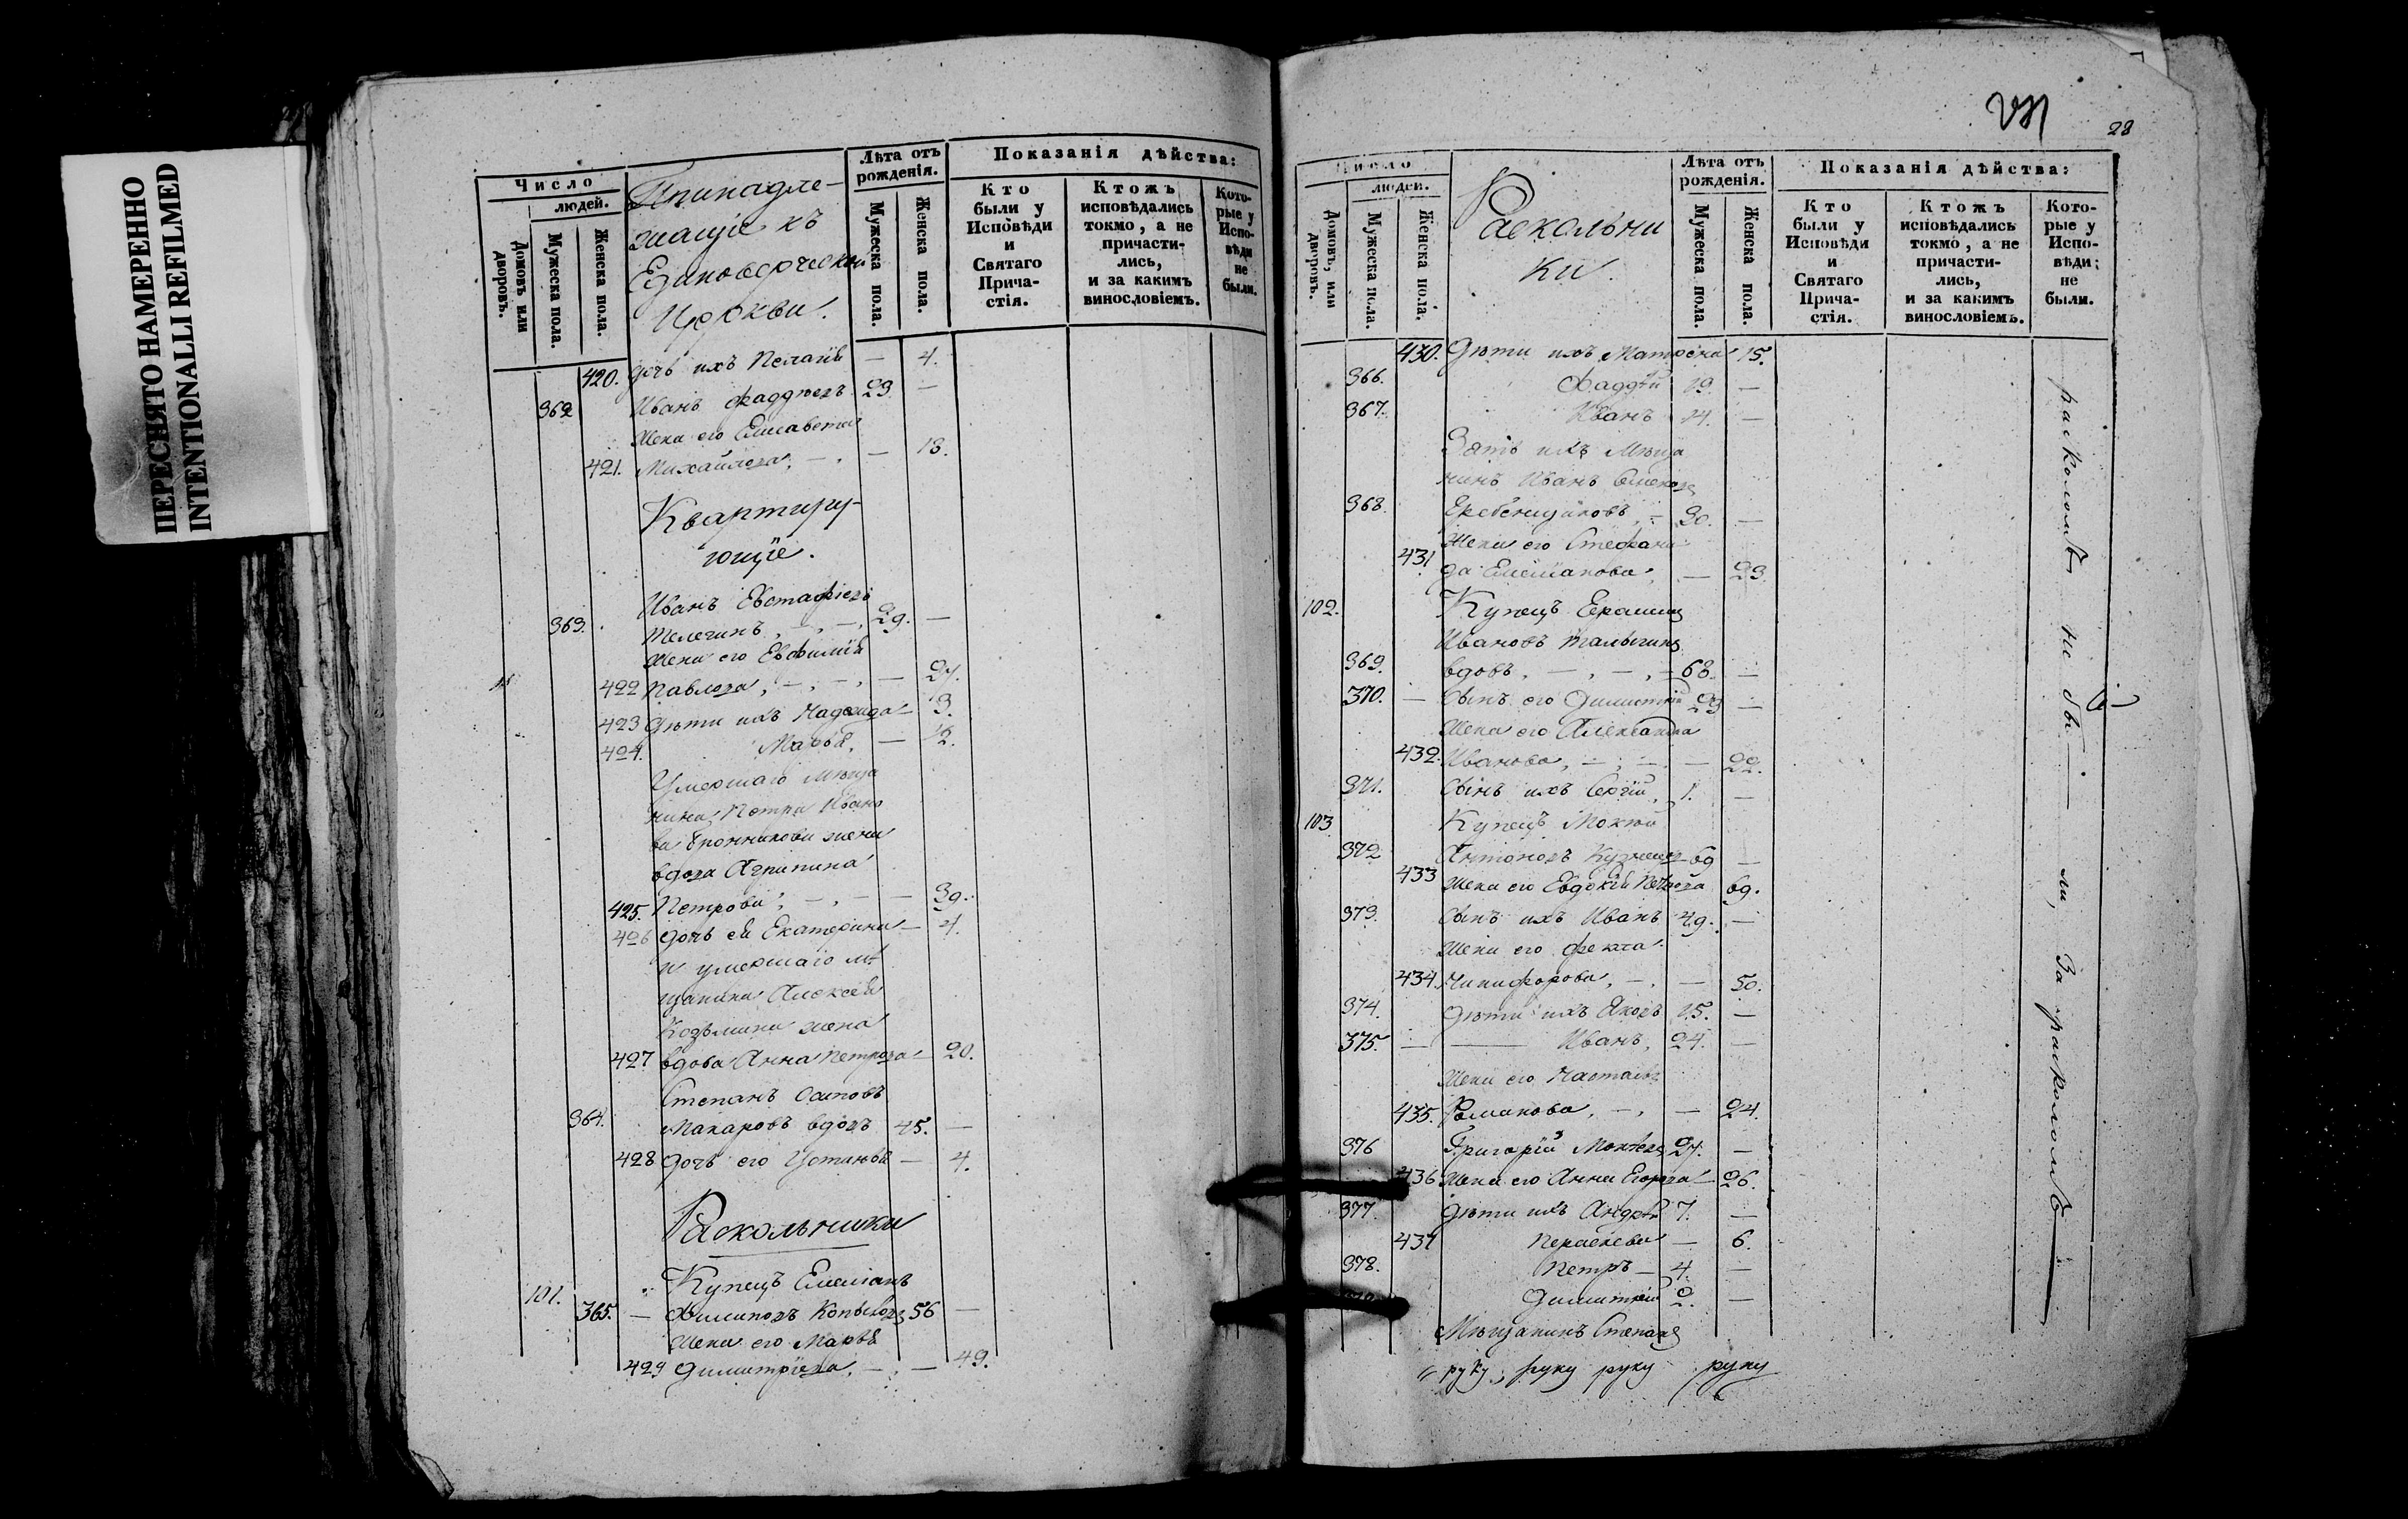 ПЕРЕСНЯТО НАМЕРЕННО
INTENTIONALLI REFILMED
Число
людей.
Домовъ или дворовъ.
Мужеска пола.
Женска пола.
Принадле-
жащіе къ
Единоверческой
Церкви.
Лѣта отъ рожденія.
Мужеска пола.
Женска пола.
Показанія дѣйства:
Кто были у Исповѣди и Святаго Причастія.
Ктожъ исповѣдались токмо, а не причастились, и за какимъ винословіемъ.
Которые у Исповѣди не были.
420. дочь ихъ Пелагія — 4.
362 Иванъ Фаддѣевъ 23 —
Жена его Елисавета
421. Михайлова, — . — 18.
Квартиру-
ющіе.
Иванъ Евстафіевъ
363. Телегинъ, — , — , 29. —
Жена его Евфимія
422 Павлова, — , — , — 27.
423 Дѣти ихъ Надежда — 3.
424. Марья, — 2.
Умершаго мѣща
нина Петра Ивано
ва жена
вдова Агрипина
425. Петрова, — , — — 39.
426 дочь ея Екатерина — 4.
и умершаго мѣ
щанина Алексѣя
Козьмина жена
427 вдова Анна Петрова — 20.
Степанъ Осиповъ
364. Макаровъ вдовъ 45. —
428 дочь его Устинья — 4.
Раскольники
101. Купецъ Емеліанъ
365. — Филиповъ Копыловъ 56 —
Жена его Марья
429 Димитріева, — , — 49.
28
Число
людей.
Домовъ, или дворовъ.
Мужеска пола.
Женска пола.
Раскольни
ки.
Лѣта отъ рожденія.
Мужеска пола.
Женска пола.
Показанія дѣйства:
Кто были у Исповѣди и Святаго Причастія.
Ктожъ исповѣдались токмо, а не причастились, и за какимъ винословіемъ.
Которые у Исповѣди не были.
430. Дѣти ихъ Матрена 15.
366. Фаддѣй 19. —
367. Иванъ 14. —
Зять ихъ Мѣща
нинъ Иванъ
368. Гребенщиковъ, — 30. —
Жена его Стефани
431 да Емеліанова, — 23.
102. Купецъ Герасимъ
Ивановъ Талызинъ
369. вдовъ, — , — , — 68. —
370. — Сынъ его Димитрій 23 —
Жена его Александра
432. Иванова, — , — . — 22.
371. Сынъ ихъ Сергій, 1. —
103. Купецъ Мокей
372 Антоновъ Кузнецовъ 69 —
433 Жена его Евдокія Петрова 69.
373. Сынъ ихъ Иванъ 49. —
Жена его Фекла
434. Никифорова, — . — 50.
374. Дѣти ихъ Яковъ 25. —
375. — — Иванъ, 24. —
Жена его Настасья
435. Романова, — , — 24.
376 Григорій Мокеевъ 27. —
436 Жена его Анна Егорова — 26.
377. Дѣти ихъ Андрей 7. —
437 Параскева — 6.
378. Петръ — 4. —
Димитрій 2. —
Мѣщанинъ Степанъ
руку, руку руку руку
расколомъ не бы — ли, За расколомъ